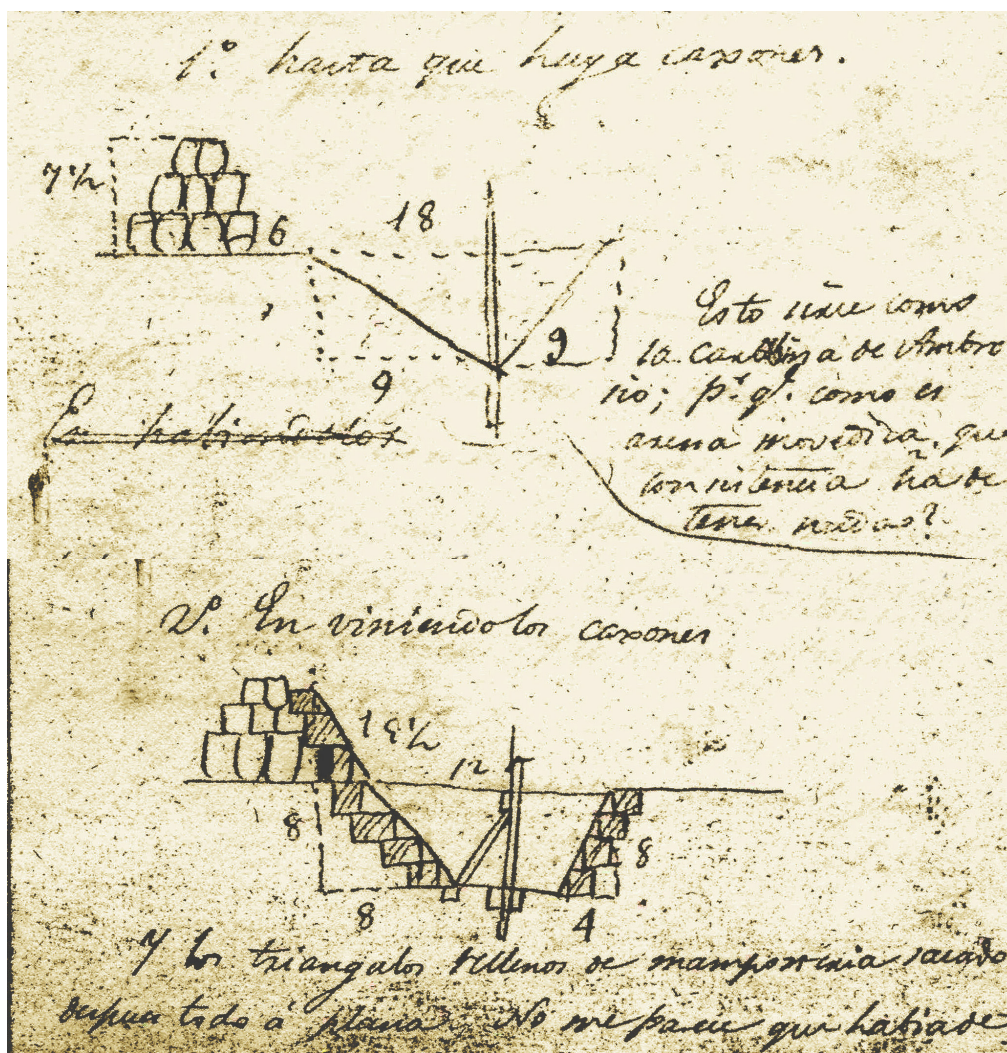 1º. hasta que huya caxones.
7 1/2
6
18
9
9
Esto sirve como
la Carabina de Ambro
sio; p.r q.e como es
arena movediza, que
consistencia ha de
tener
En habiendolos
2º. En viniendo los caxones
12
8
8
8
4
Y los triangulos rellenos de mamposteria sacado
despues todo á plana. No me parece que habia de